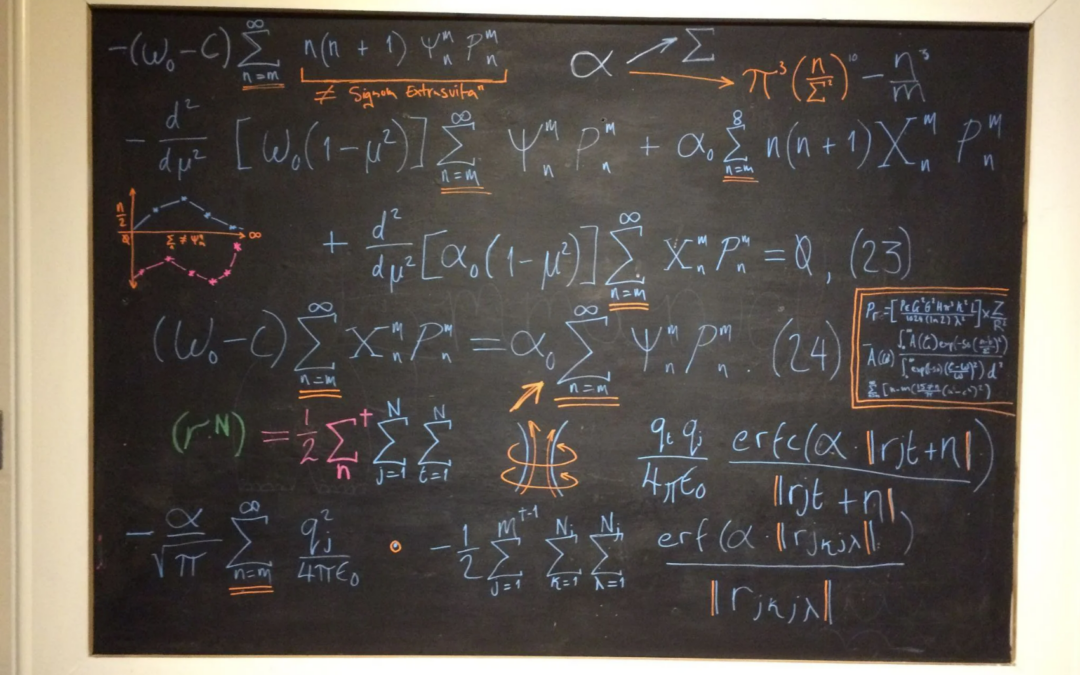 -(ω₀-C) ∞ Σ n=m n(n+1) Ψₙᵐ Pₙᵐ
≠ Signum Extrasvita"
α Σ π³(n/Σ²)¹⁰ - n³/m
- d²/dμ² [ω₀(1-μ²)] ∞ Σ n=m Ψₙᵐ Pₙᵐ + α₀ 8 Σ n=m n(n+1) Xₙᵐ Pₙᵐ
n/2 ∞
+ d²/dμ² [α₀(1-μ²)] ∞ Σ n=m Xₙᵐ Pₙᵐ = 0, (23)
(ω₀-C) ∞ Σ n=m Xₙᵐ Pₙᵐ = α₀ ∞ Σ n=m Ψₙᵐ Pₙᵐ. (24)
(r.N) = 1/2 Σ† n N Σ j=1 N Σ t=1 qₜ qⱼ / 4πε₀ erfc(α·‖rjt+n‖) / ‖rjt+n‖
- α/√π ∞ Σ n=m qⱼ² / 4πε₀ • - 1/2 M†⁻¹ Σ j=1 Nⱼ Σ κ=1 Nⱼ Σ λ=1 erf(α·‖rⱼκⱼλ‖) / ‖rⱼκⱼλ‖